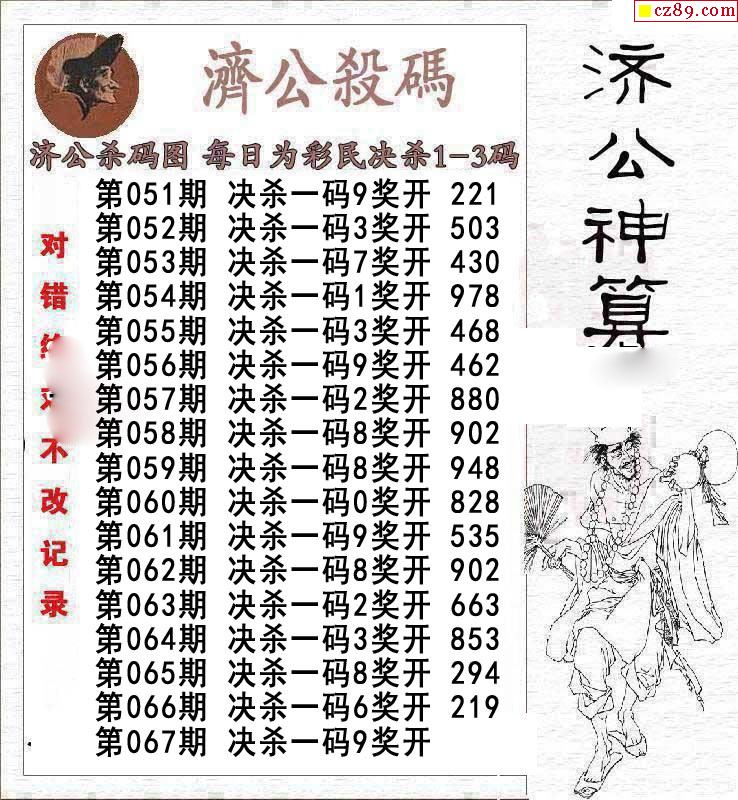 cz89.com
濟公殺碼
济公杀码图 每日为彩民决杀1-3码
第051期 决杀一码9奖开 221
第052期 决杀一码3奖开 503
第053期 决杀一码7奖开 430
第054期 决杀一码1奖开 978
第055期 决杀一码3奖开 468
第056期 决杀一码9奖开 462
第057期 决杀一码2奖开 880
第058期 决杀一码8奖开 902
第059期 决杀一码8奖开 948
第060期 决杀一码0奖开 828
第061期 决杀一码9奖开 535
第062期 决杀一码8奖开 902
第063期 决杀一码2奖开 663
第064期 决杀一码3奖开 853
第065期 决杀一码8奖开 294
第066期 决杀一码6奖开 219
第067期 决杀一码9奖开
对错不改记录
济公神算